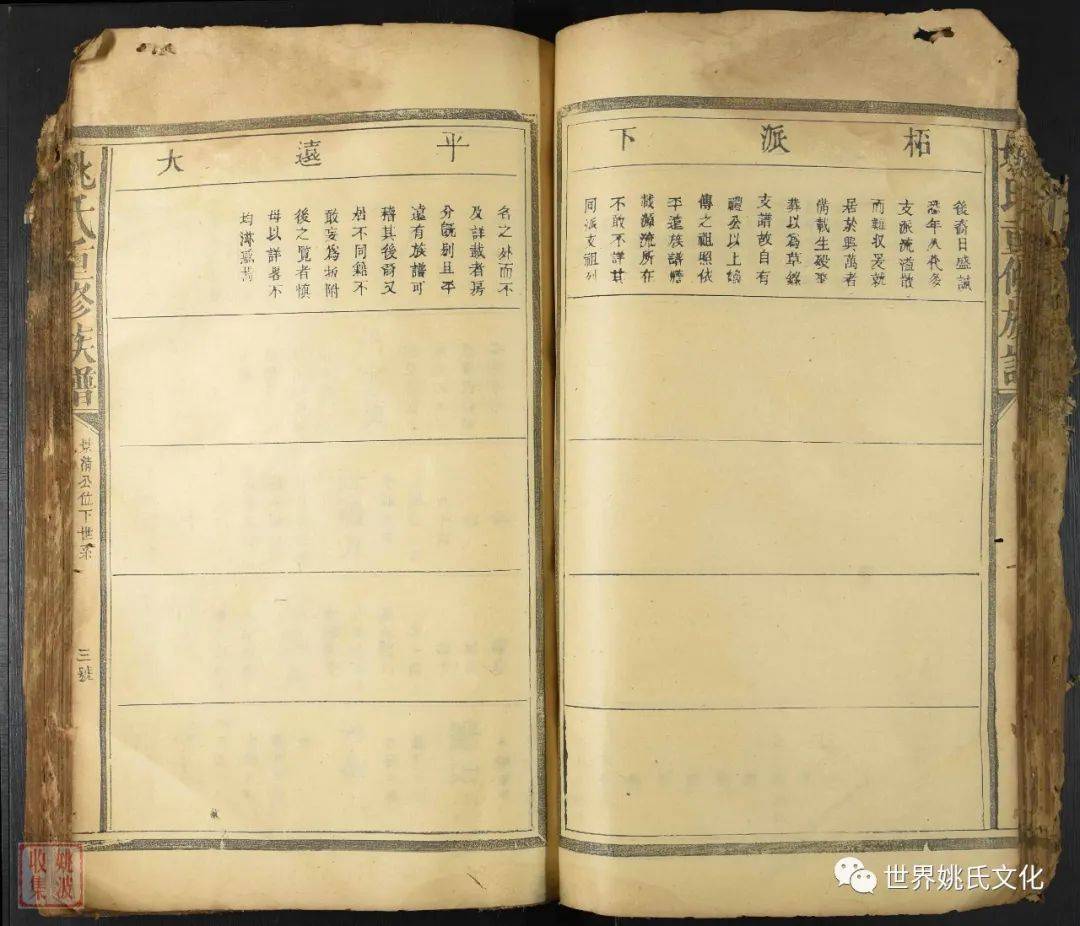 柘派下
後裔日盛誠
恐年久代多
支派流溢散
而難收爰就
居於興萬者
備載生殁墬
葬以為草縣
支譜故自有
禮公以上嫡
傳之祖照依
平遠族譜譫
載源流所在
不敢不詳其
同派支祖列
平遠大
名之外而不
及詳載者房
分既别且平
遠有族譜可
稽其後裔又
居不同籍不
敢妄為折附
後之覽者慎
毋以詳畧不
均
姚氏重修族譜
公位下世系
三號
姚氏重修族譜
姚波收集
世界姚氏文化